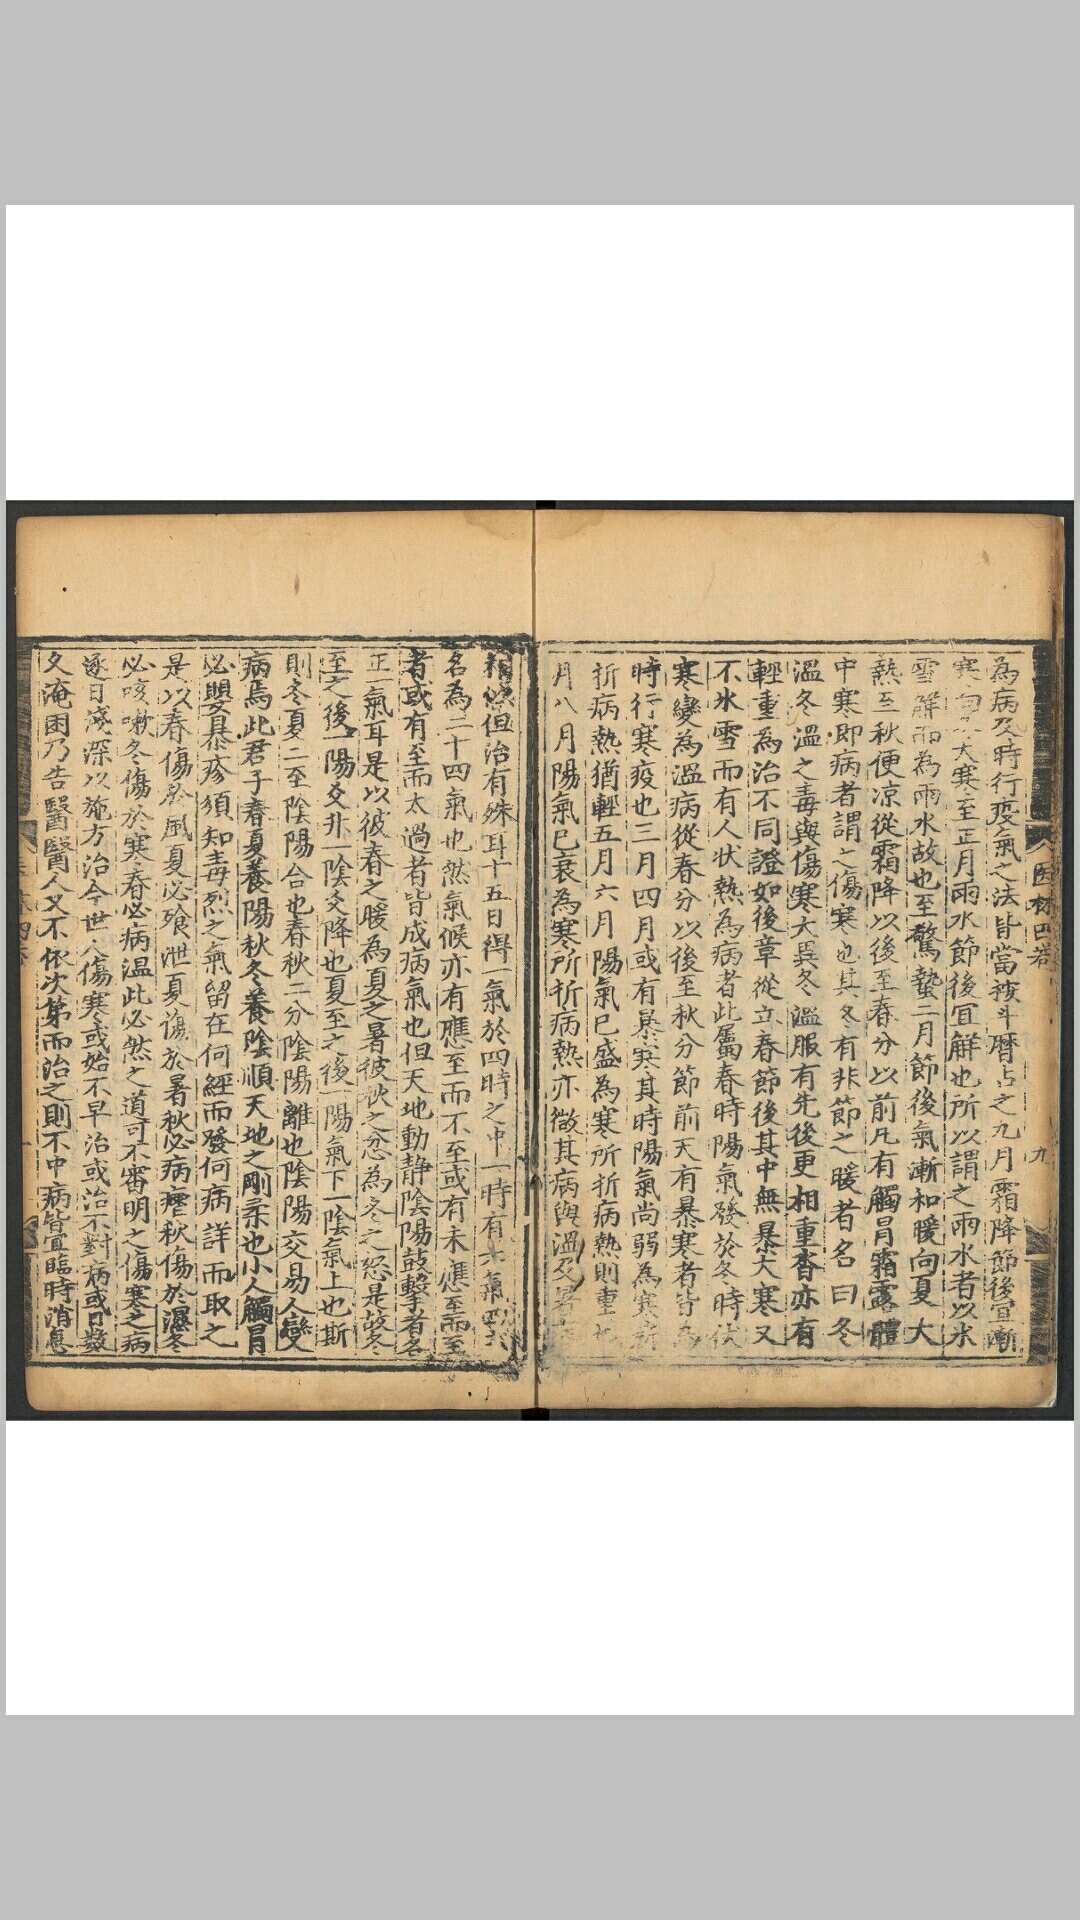 為病及時行疫氣之法皆當按斗曆占之九月霜降節後宜漸
寒向大寒至正月雨水節後宜解也所以謂之雨水者以氷
雪解而為雨水故也至驚蟄二月節後氣漸和暖向夏大
熱至秋便凉從霜降以後至春分以前凡有觸冒霜露體
中寒即病者謂之傷寒也其冬有非節之暖者名曰冬
溫冬溫之毒與傷寒大異冬溫服有先後更相重沓亦有
輕重為治不同證如後章從立春節後其中無暴大寒又
不氷雪而有人状熱為病者此屬春時陽氣發於冬時伏
寒變為溫病從春分以後至秋分節前天有暴寒者皆為
時行寒疫也三月四月或有暴寒其時陽氣尚弱為寒所
折病熱猶輕五月六月陽氣已盛為寒所折病熱則重七
月八月陽氣已衰為寒所折病熱亦微其病與溫及暑
医林四卷
九
相似但治有殊耳十五日得一氣於四時之中一時有六氣四六
名為二十四氣也然氣候亦有應至而不至或有未應至而至
者或有至而太過者皆成病氣也但天地動静陰陽鼓擊者各
正一氣耳是以彼春之暖為夏之暑彼秋之忿為冬之怒是故冬
至之後一陽爻升一陰爻降也夏至之後一陽氣下一陰氣上也斯
則冬夏二至陰陽合也春秋二分陰陽離也陰陽交易人變
病焉此君子春夏養陽秋冬養陰順天地之剛柔也小人觸冒
必嬰暴疹須知毒烈之氣留在何經而發何病詳而取之
是以春傷於風夏必飱泄夏傷於暑秋必病瘧秋傷於濕冬
必咳嗽冬傷於寒春必病温此必然之道可不審明之傷寒之病
逐日淺深以施方治今世人傷寒或始不早治或治不對病或日数
久淹困乃告醫醫人又不依次第而治之則不中病皆宜臨時消息